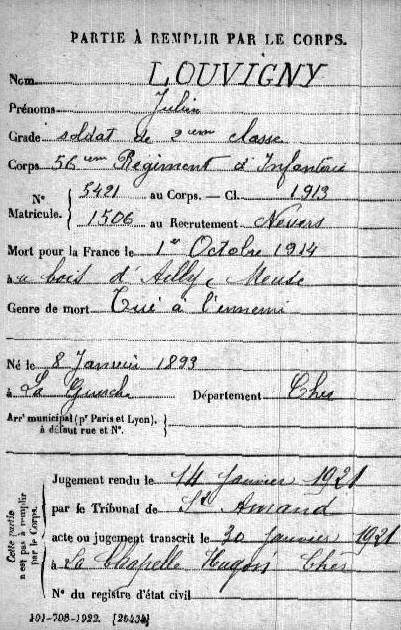 PARTIE À REMPLIR PAR LE CORPS.
Nom LOUVIGNY
Prénoms Julien
Grade soldat de 2eme classe
Corps 56eme Régiment d'Infanterie
N° Matricule. { 5421 au Corps. — Cl. 1913
1506 au Recrutement Nevers
Mort pour la France le 1er Octobre 1914
à u bois d'Ailly, Meuse
Genre de mort Tué à l'ennemi
Né le 8 Janvier 1893
à La Guerche Département Cher
Arrt municipal (pr Paris et Lyon), à défaut rue et N°. }
Cette partie n'est pas à remplir par le Corps.
Jugement rendu le 14 Janvier 1921
par le Tribunal de St Amand
acte ou jugement transcrit le 30 Janvier 1921
à La Chapelle Hugon Cher
N° du registre d'état civil
101-708-1922. [26434]